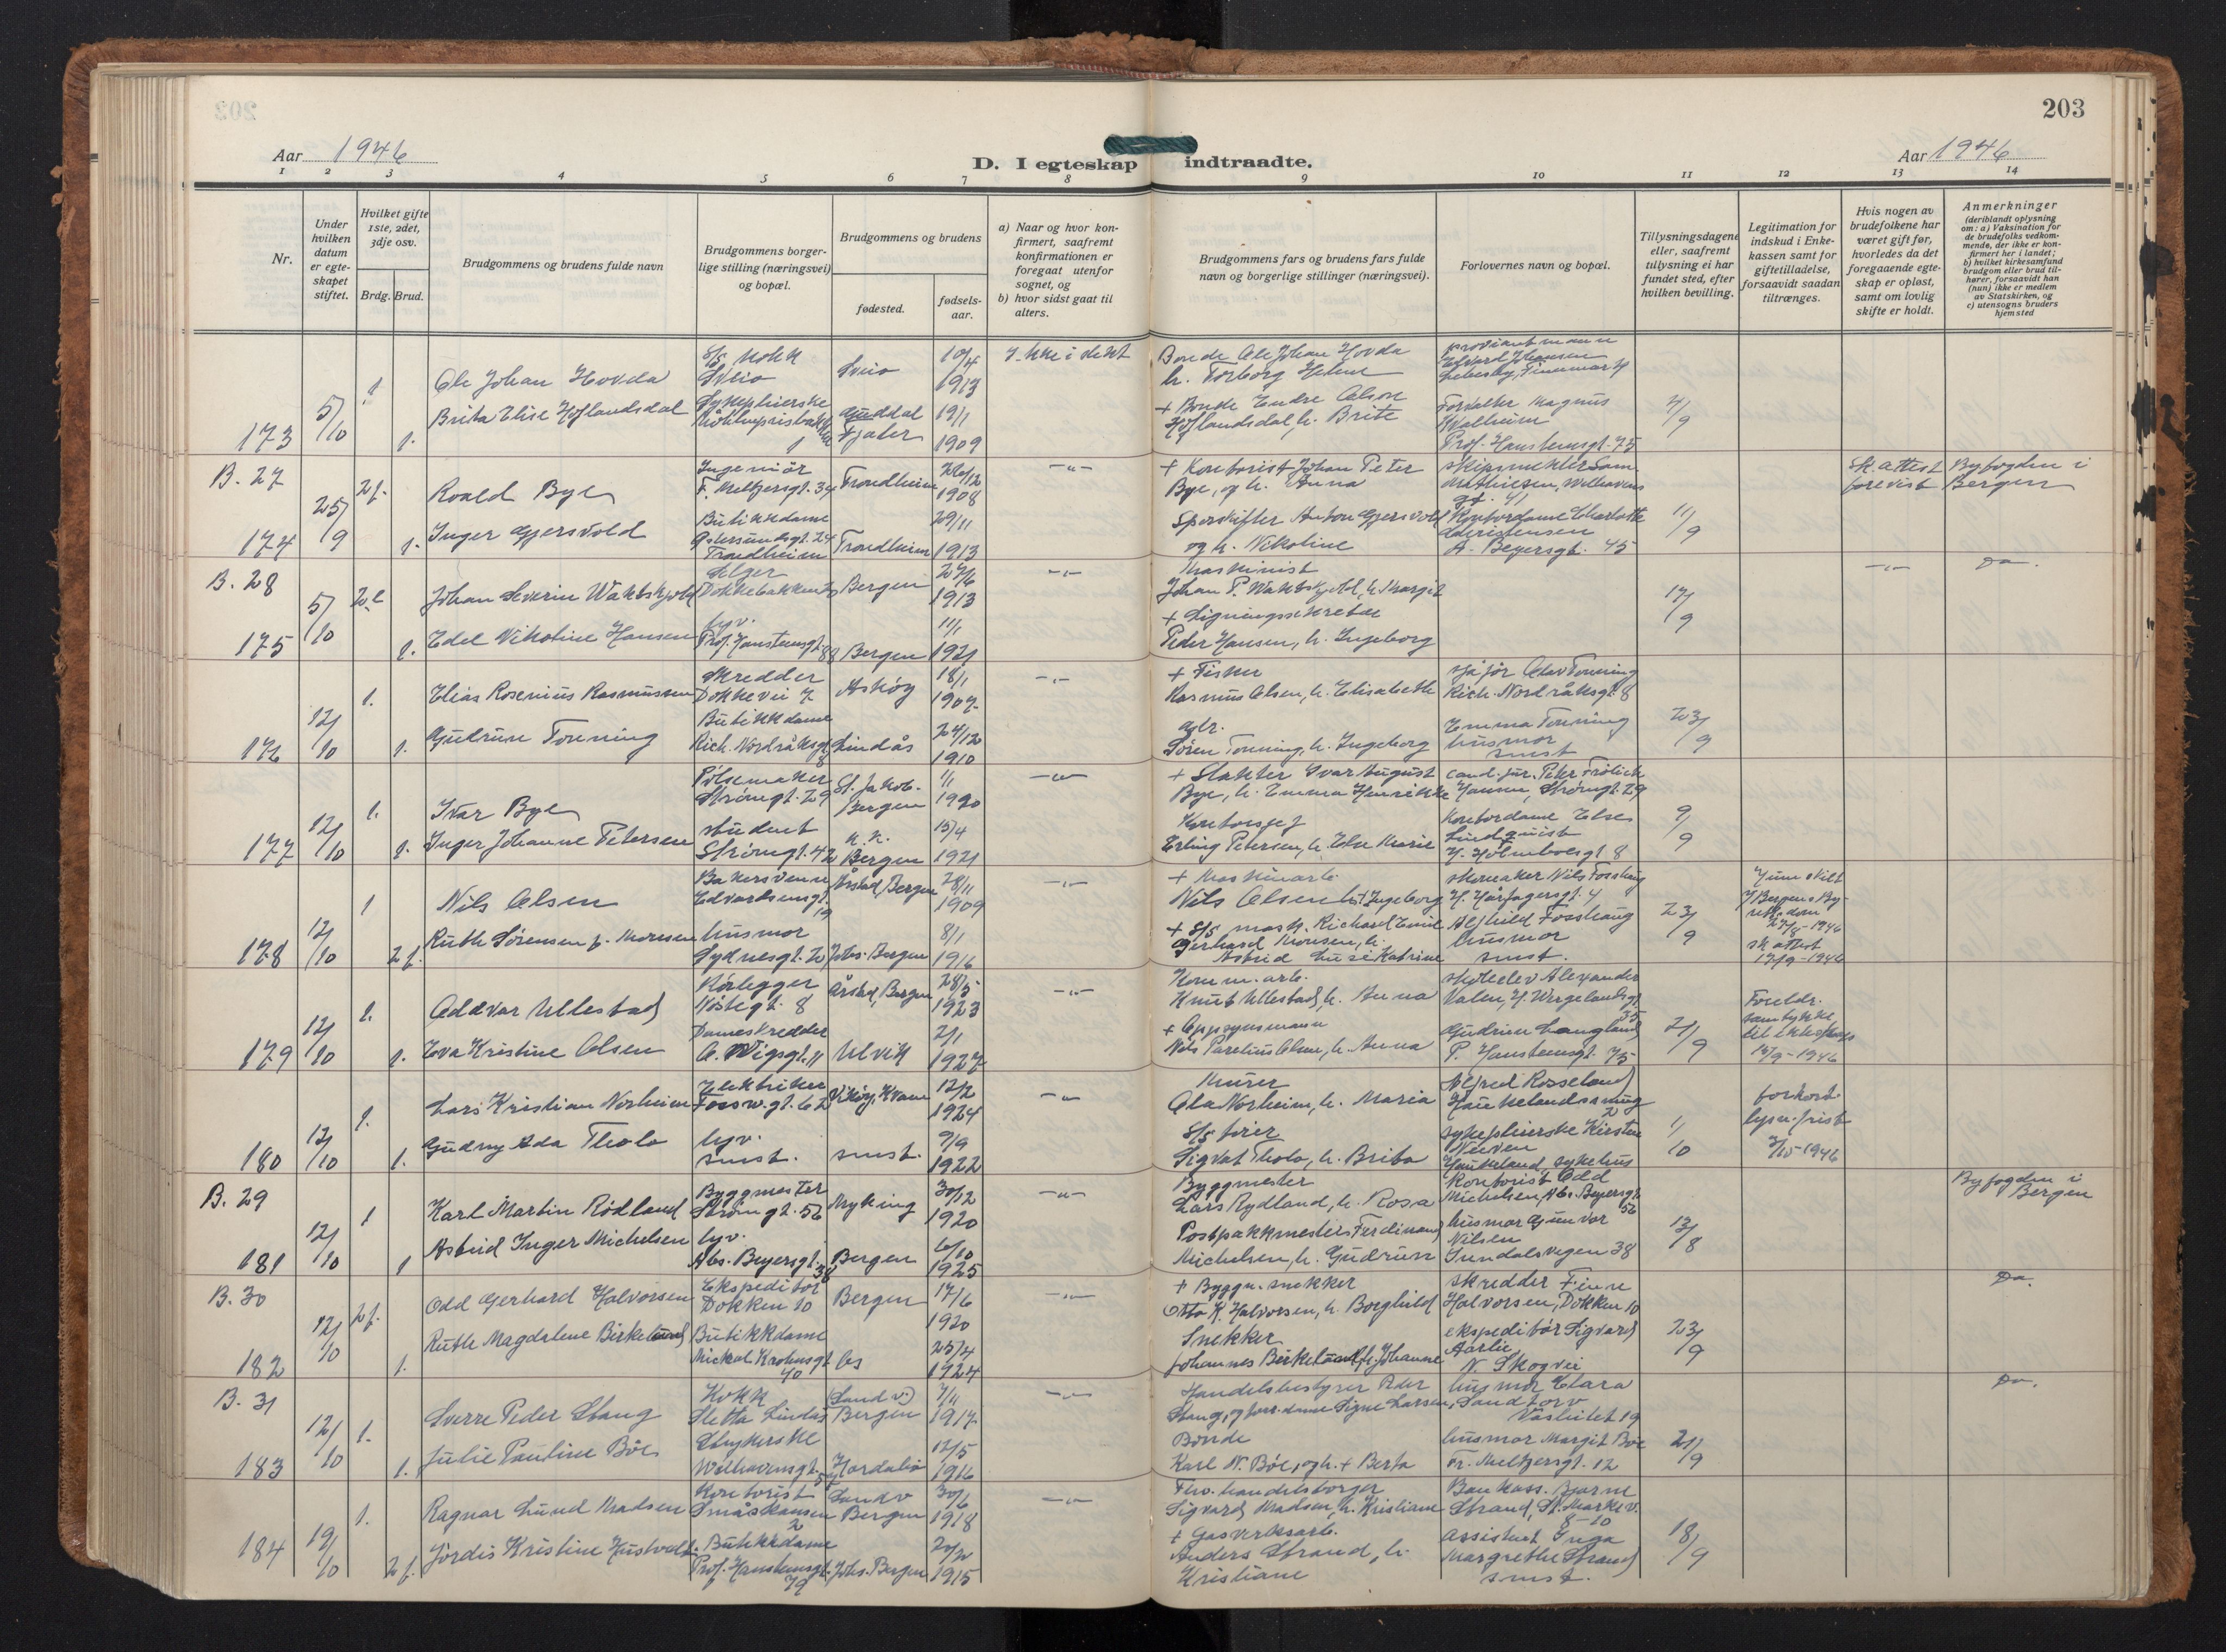 203
Aar 1946
D. I egteskap indtraadte.
Aar 1946
1 2 3 4 5 6 7 8 9 10 11 12 13 14
Nr.
Under hvilken datum er egteskapet stiftet.
Hvilket gifte 1ste, 2det, 3dje osv.
Brdg. Brud.
Brudgommens og brudens fulde navn
Brudgommens borgerlige stilling (næringsvei) og bopæl.
Brudgommens og brudens
fødested.
fødselsaar.
a) Naar og hvor konfirmert, saafremt konfirmationen er foregaat utenfor sognet, og
b) hvor sidst gaat til alters.
Brudgommens fars og brudens fars fulde navn og borgerlige stillinger (næringsvei).
Forlovernes navn og bopæl.
Tillysningsdagene eller, saafremt tillysning ei har fundet sted, efter hvilken bevilling.
Legitimation for indskud i Enkekassen samt for giftetilladelse, forsaavidt saadan tiltrænges.
Hvis nogen av brudefolkene har været gift før, hvorledes da det foregaaende egteskap er opløst, samt om lovlig skifte er holdt.
Anmerkninger
(deriblandt oplysning om: a) Vaksination for de brudefolks vedkommende, der ikke er konfirmert her i landet; b) hvilket kirkesamfund brudgom eller brud tilhører, forsaavidt han (hun) ikke er medlem av Statskirken, og c) utensogns bruders hjemsted
173 5/10 1. Ole Johan Hovda S/S Kokk Sveio Sveio 10/4 1913
Bonde Ole Johan Hovda h. Torborg Helene
1. Brita Elise Høflandsdal Sykepleierske Guddal Fjaler 19/1 1909
+ Bonde Endre Olson Høflandsdal, h. Brite
Prof. Hansteensgt. 75
B. 27
174 25/9 2f. Roald Bye Ingeniør F. Meltzersgt. 34 Trondheim 1908 -"-
+ Kontorist Johan Peter Bye, og h. Anna
11/9
sk. attest forevist
Byfogden i Bergen
1. Inger Gjersvold Butikkdame Østersundsgt. 24 Trondheim Trondheim 29/11 1913
Sporskifter Anton Gjersvold og h. Nikoline
Kontordame Charlotte
A. Beyersgt. 45
B. 28
175 5/10 Johan Severin Wakbskjold Selger Dokkebakken Bergen 27/6 1913 -"-
Maskinist Johan P. Wakbskjold, h. Margit
17/9
-"- Do.
1. Edel Nikoline Hansen hv. Prof. Hansteensgt. 88 Bergen 11/1 1921
+ Ligningssekretær Peder Hansen, h. Ingeborg
176 12/10 1. Elias Rosenius Rasmussen Skredder Dokkevei 7 Askøy 18/1 1907 -"-
+ Fisker Rasmus Olsen, h. Elisabeth
sjåfør Olav Tonning Rich. Nordråksgt. 8
23/9
1. Gudrun Tonning Butikkdame Rich. Nordråksgt. 8 Lindås 24/12 1910
Søren Tonning, h. Ingeborg
Emma Tonning husmor smst
177 12/10 1. Ivar Bye Pølsemaker Strømgt. 29 St. Jakob. Bergen 1/1 1920 -"-
+ Slakter Ivar August Bye, h. Emma Henrikke
cand. jur. Peter Frølich Hansen, Strømgt. 29
9/9
1. Inger Johanne Petersen student Strømgt. 42 Bergen 15/4 1921
Kontorsjef Erling Petersen, h. Else Marie
Kontordame Else Lindquist
178 12/10 1 Nils Olsen Bakersvenn Edvardsensgt. 19 Årstad, Bergen 28/11 1909 -"-
+ Maskinarb. Nils Olsen, h. + Ingeborg
skomaker Nils Fosshaug H. Hårfagersgt. 4
23/9
2f. Ruth Sørensen f. Monsen husmor Sydnesgt. Johs. Bergen 8/1 1916
+ S/S mask. Richard Emil Gerhard Monsen, h. Astrid Luise Katrine
Alfhild Fosshaug husmor smst.
27/8-1946
sk attest
17/9-1946
179 12/10 1. Oddvar Ullestad Rørlegger Nøstegt. 8 Årstad, Bergen 28/5 1923 -"-
Komm. arb. Knut Ullestad, h. Anna
Alexander Valen, H. Wergelandsgt. 35
21/9
Foreldr. samtykke til ekteskap
1. Eva Kristine Olsen Dameskredder Ulvik 2/1 1927
+ Oppsynsmann Nils Parelius Olsen, h. Anna
Gudrun Langland P. Hansteensgt. 75
180 12/10 1. Lars Kristian Norheim Elektriker Fossw.gt. 62 Vikøy, Kvam 12/2 1924 -"-
Murer Ola Norheim, h. Maria
Alfred Rosseland
1/10
forkort. lysn. frist
1. Gudny Ada Tholo hv. smst. smst. 9/9 1922
S/S fører Sigvat Tholo, h. Brita
sykepleierske Kirsten
Haukeland sykehus
B. 29
181 12/10 1 Karl Martin Rødland Byggmester Strømgt. 56 Myking 30/12 1920 -"-
Byggmester Lars Rydland, h. Rosa
Kontorist Odd Michelsen, Abs. Beyersgt. 56
13/8
Byfogden i Bergen
1 Astrid Inger Michelsen hv. Abs. Beyersgt. 38 Bergen 6/10 1925
Postpakkmester Ferdinand Michelsen, h. Gudrun
husmor Gunvor Nilsen Sundalsvegen 38
B. 30
182 12/10 2f. Odd Gerhard Halvorsen Ekspeditør Dokken 10 Bergen 17/6 1920 -"-
+ Byggn. snekker Otto K. Halvorsen, h. Borghild
skredder Finn Halvorsen, Dokken 10
23/9
Do.
1. Ruth Magdalene Birkelund Butikkdame Mickal Krohnsgt. 40 25/4 1924
Snekker Johannes Birkelund, h. Johanne
ekspeditør Sigvard Aarlie N. Skogvei
B. 31
183 12/10 1. Sverre Peder Stang Kokk Sletta Lindås (Sandv.) Bergen 7/11 1917 -"-
Handelsbestyrer Peder Stang, og Signe Larsen
husmor Clara Sandtorv
21/9
Do.
1. Julie Pauline Bøe Strykerske Welhavensgt. Hordabø 12/5 1916
Bonde Karl N. Bøe, og h. + Berta
husmor Margit Bøe Fr. Meltzersgt. 12
184 19/10 1. Ragnar Lund Madsen Kontorist Småskansen 2 Sandv Bergen 30/6 1918 -"-
Fhv. handelsborger Sigvard Madsen, h. Kristiane
Bankass. Bjarne Strand, St. Markev. 8-10
18/9
2f. Jørdis Kristine Butikkdame Prof. Hansteensgt. 79 Johs. Bergen 1915
+ Gasverksarb. Anders Strand, h. Kristiane
Assistent Inga Margrethe Strand smst.